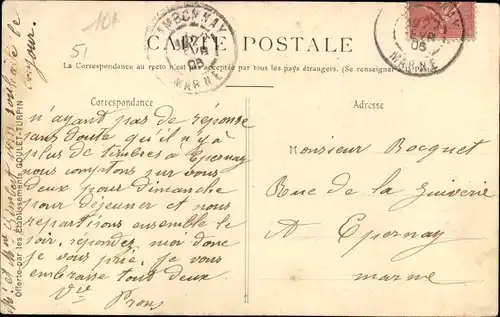 10f
51
AMBONNAY
12
AVR
06
MARNE
CARTE POSTALE
La Correspondance au recto n'est pas acceptée par tous les pays étrangers. (Se renseigner à la Poste)
AVR
06
MARNE
Correspondance
n'ayant pas de réponse
sans doute qu'il n'y a
plus de timbres à Epernay
nous comptons sur vous
deux pour dimanche
pour déjeuner et nous
repartirons ensemble le
soir, repondez moi donc
je vous prie, je vous
embrasse tout deux
Vve
Adresse
Monsieur Bocquet
Rue de la Juiverie
A Epernay
Marne
Offerte par les Etablissements GOULET-TURPIN
M. et Mme souhaite le
bonjour.